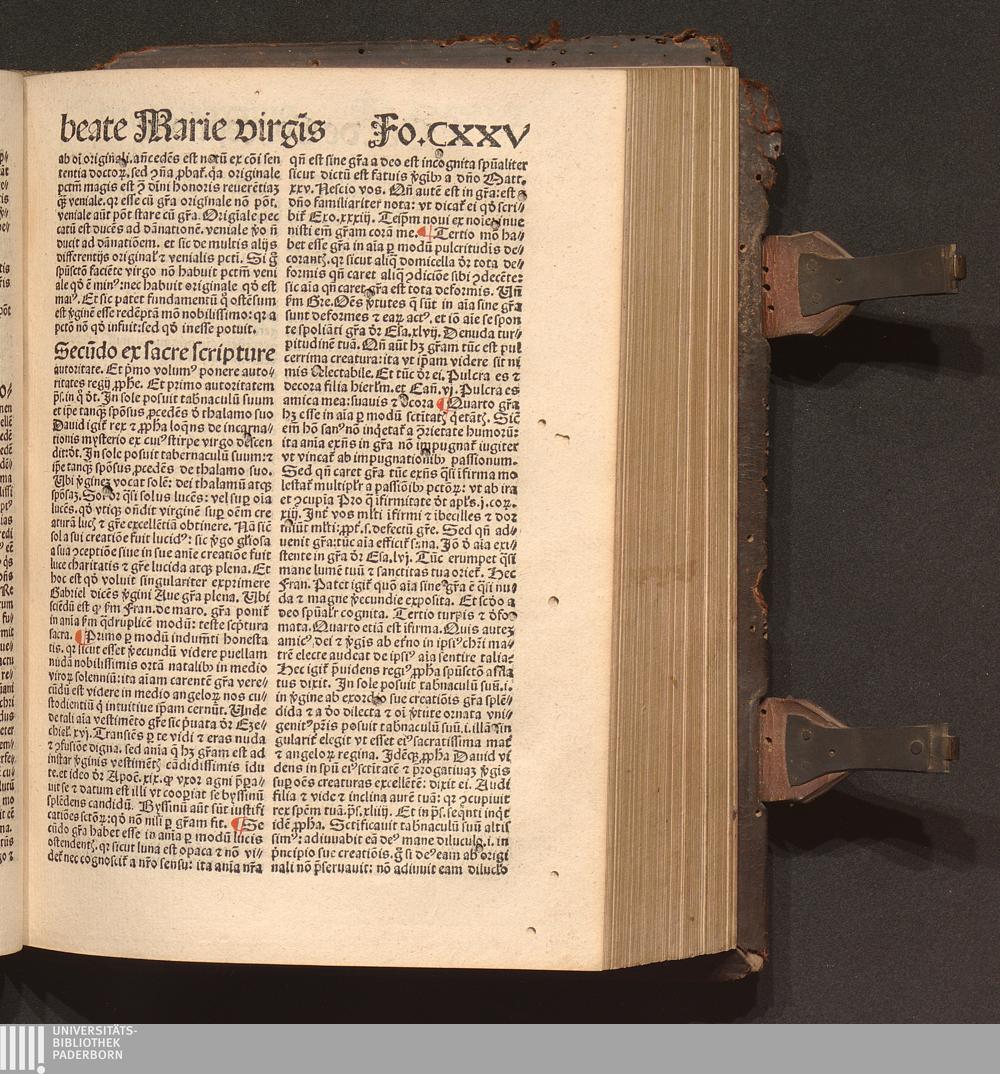 beate Marie virgīs Fo.CXXV
ab oī originali. añcedēs est notū ex cōi sen
tentia doctoꝝ. sed ꝯña ꝓbat̃. qa originale
pctm̄ magis est ꝯ dīni honoris reuerētiaꝫ
qꝫ veniale. qr esse cū gr̄a originale nō pōt.
veniale aūt pōt stare cū gr̄a. Originale pec
catū est ducēs ad dānationē. veniale ꝟo ñ
ducit ad dānatiōem. et sic de multis alijs
differentijs original̓ ⁊ venialis pcti. Si g̊
spūsctō faciēte virgo nō habuit pctm̄ veni
ale qđ ē minꝰ: nec habuit originale qđ est
maiꝰ. Et sic patet fundamentū q̄ ostēsum
est ꝟginē esse redēptā mō nobilissimo: qr a
pctō nō qđ infuit: sed qđ inesse potuit.
Secūdo ex sacre scripture
autoritate. Et p̄mo volumꝰ ponere auto/
ritates regij ꝓphe. Et primo autoritatem
pš. in q̄ đt. In sole posuit tabnaculū suum
et ip̄e tanqꝫ spōsus ꝓcedēs đ thalamo suo
Dauid igit̃ rex ⁊ ꝓpha loqn̄s de incarna/
tionis mysterio ex cuiꝰ stirpe virgo descen
dit: đt. In sole posuit tabernaculū suum: ⁊
ip̄e tanqꝫ spōsus ꝓcedēs de thalamo suo.
Ubi ꝟgineꝫ vocat solē: dei thalamū atqꝫ
spōsaꝫ. Sol đr qsi solus lucēs: vel suꝑ oīa
lucēs. qđ vtiqꝫ on̄dit virginē suꝑ oēm cre
aturā lucꝭ ⁊ gr̄e excellētiā obtinere. Nā sič
sol a sui creatiōe fuit lucidꝰ: sic ꝟgo gl̄iosa
a sua ꝯceptiōe siue in sue anīe creatiōe fuit
luce charitatis ⁊ gr̄e lucida atqꝫ plena. Et
hoc est qđ voluit singulariter exprimere
Gabriel dicēs ꝟgini Aue gr̄a plena. Ubi
sciēdū est ꝙ ẜm Fran. de maro. gr̄a ponit̃
in anīa ẜm qdruplicē modū: teste scptura
sacra. ¶ Primo ꝑ modū indumt̄i honesta
tis. qr sicut esset ꝟecundū videre puellam
nudā nobilissimis ortā natalibꝰ in medio
viroꝝ solenniū: ita aīam carentē gr̄a vere/
cūdū est videre in medio angeloꝝ nos cu/
stodientiū q̄ intuitiue ip̄am cernūt. Unde
de tali aīa vestimēto gr̄e sic p̄uata đr Eze/
chiel. xvj. Transēs ꝑ te vidi ⁊ eras nuda
⁊ ꝯfusiōe digna. sed anīa q̄ hꝫ gr̄am est ad
instar ꝟginis vestimentꝭ cādidissimis idu
te. et ideo đr Apoč. xix. ꝙ vxor agni p̄pa/
uit se ⁊ datum est illi vt coopiat se byssinū
splēdens candidū. Byssinū aūt sūt iustifi
catiōes sctōꝝ: qđ nō nisi ꝑ gr̄am fit. ¶ Se
cūdo gr̄a habet esse in anīa ꝑ modū lucis
ostendentꝭ. qr sicut luna est opaca ⁊ nō vi/
det̃ nec cognoscit̃ a nr̄o sensu: ita anīa nr̄a
qn̄ est sine gr̄a a deo est incognita spūaliter
sicut dictū est fatuis ꝟgibꝰ a dn̄o Matt.
xxv. Nescio vos. Qn̄ autē est in gr̄a: est a
dn̄o familiariter nota: vt dicat̃ ei qđ scri/
bit̃ Exo. xxxiij. Teip̄m noui ex noīe ⁊ inue
nisti em̄ gr̄am corā me. ¶ Tertio mō ha/
bet esse gr̄a in aīa ꝑ modū pulcritudis de/
corantꝭ. qr sicut aliq̄ domicella đr tota de/
formis qn̄ caret aliq̄ ꝯdiciōe sibi ꝯdecēte:
sic aīa qn̄ caret gr̄a est tota deformis. Un̄
ẜm Gre. Oēs ꝟtutes q̄ sūt in aīa sine gr̄a
sunt deformes ⁊ eaꝝ actꝰ. et iō aīe se spon
te spoliāti gr̄a đr Esa. xlvij. Denuda tur/
pitudinē tuā. Qn̄ aūt hꝫ gr̄am tūc est pul
cerrima creatura: ita vt ip̄am videre sit ni
mis đlectabile. Et tūc đr ei. Pulcra es ⁊
decora filia hierlm̄. et Cañ. vj. Pulcra es
amica mea: suauis ⁊ đcora ¶ Quarto gr̄a
hꝫ esse in aīa ꝑ modū sctitatꝭ q̇etātꝭ. Sič
em̄ hō sanꝰ nō inq̇etat̃ a ꝯrietate humorū:
ita anīa exn̄s in gr̄a nō impugnat̃ iugiter
vt vincat̃ ab impugnationibꝰ passionum.
Sed qn̄ caret gr̄a tūc exn̄s qsi ifirma mo
lestat̃ multipl̓r a passiōibꝰ pctōꝝ: vt ab ira
et ꝯcupīa Pro q̄ ifirmitate đt apl̓s. j. coꝝ.
xij. Int̓ vos ml̓ti ifirmi ⁊ ibecilles ⁊ dor
miūt ml̓ti: ꝓpt̓. s. defectū gr̄e. Sed qn̄ ad/
uenit gr̄a: tūc aīa efficit̃ sana. Iō đ aīa exi/
stente in gr̄a đr Esa. lvj. Tūc erumpet qsi
mane lumē tuū ⁊ sanctitas tua oriet̃. Hec
Fran. Patet igit̃ quō aīa sine gr̄a ē qsi nu/
da ⁊ magne ꝟecundie exposita. Et scđo a
deo spūal̓r cognita. Tertio turpis ⁊ đfo/
mata. Quarto etiā est ifirma. Quis auteꝫ
amicꝰ dei ⁊ ꝟgis ab et̓no in ipsiꝰ chr̄i ma/
trē electe audeat de ipsiꝰ aīa sentire talia:
Hec igit̃ p̄uidens regiꝰ ꝓpha spūsctō affla
tus dixit. In sole posuit tabnaculū suū. i.
in ꝟgine ab exordio sue creatiōis gr̄a splē/
dida ⁊ a đo dilecta ⁊ oī ꝟtute ornata vni/
genitꝰ pr̄is posuit tabnaculū suū. i. illā sin
gularit̓ elegit vt esset eiꝰ sacratissima mat̓
⁊ angeloꝝ regina. Idēqꝫ ꝓpha Dauid vi
dens in spū eiꝰ sctitatē ⁊ p̄rogatiuaꝫ ꝟgis
suꝑ oēs creaturas excellētē: dixit ei. Audi
filia ⁊ vide ⁊ inclina aurē tuā: qr ꝯcupiuit
rex spēm tuā. pš. xliiij. Et in pš. seq̄nti inqt
idē ꝓpha. Sctificauit tabnaculū suū altis
simꝰ: adiuuabit eā deꝰ mane diluculo. i. in
p̄ncipio sue creatiōis. g̊ si deꝰ eam ab origi
nali nō p̄seruauit: nō adiuuit eam dilucło
UNIVERSITÄTS-
BIBLIOTHEK
PADERBORN